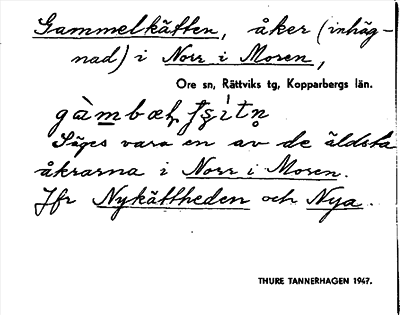 Gammelkätten, åker (inhäg-
nad) i Norr i Moren,
Ore sn, Rättviks tg, Kopparbergs län.
Säges vara en av de äldsta
åkrarna i Norr i Moren.
Jfr Nykättheden och Nya.
THURE TANNERHAGEN 1947.